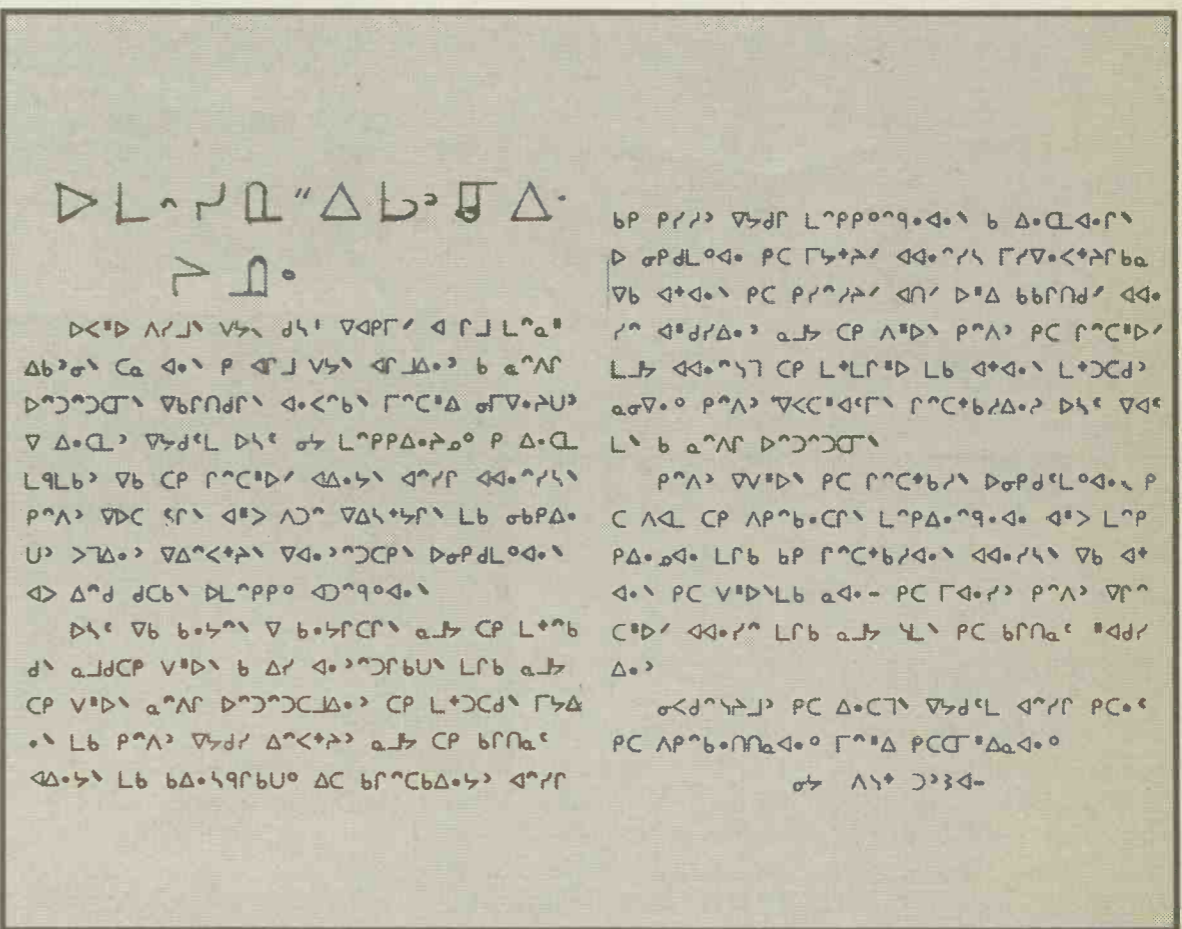 ᐅᐸᐦᐅ ᐱᓯᒧᐠ ᐯᔭᐠ ᑯᓴᑊ ᐁᐊᑭᒥᐟ ᐊ ᒋᒧ ᒪᐢᓇᐦ
ᐃᑲᐣᓂᐠ ᑕᓇ ᐊᐧᐠ ᑭ ᐊᒋᒧ ᐯᔭᐠ ᐊᒋᒧᐃᐧᐣ ᑲ ᓇᐢᐱᒋ
ᐅᐢᑐᐢᑐᑕᒥᐠ ᐁᑲᒋᑎᑯᒋᐠ ᐊᐧᐸᐢᑲᐠ ᒥᐢᑕᐦᐃ ᓂᒥᐁᐧᔨᑌᐣ
ᐁ ᐃᐧᑕᒪᐣ ᐁᔭᑯᕒᒪ ᐅᓴᕒ ᓂᔭ ᒪᐢᑭᑭᐃᐧᔨᓄᐤ ᑭ ᐃᐧᑕᒪ
ᒪᑫᒪᑲᐣ ᐁᑲ ᑕᑭ ᒋᐢᑕᐦᐅᐟ ᐊᐃᐧᔭᐠ ᐊᐢᓯᒋ ᐊᐊᐧᐢᓯᓴᐠ
ᑭᐢᐱᐣ ᐁᐅᑕ ᕒᒋᐠ ᐊᐦᐳ ᐱᑐᐢ ᐁᐃᓴᕀᔭᒋᐠ ᒪᑲ ᓂᑲᑭᐃᐧ
ᑌᐣ ᐳᒣᐃᐧᐣ ᐁᐃᐢᐸᕀᔨᐠ ᐁᐊᐧᐣᐢᑐᑕᑭᐠ ᐅᓂᑭᑯᒪᐤᐊᐧᐠ
ᐊᐳ ᐃᐢᑯ ᑯᑕᑲᐠ ᐅᒪᐢᑭᑭᐤ ᐊᑐᐢᑫᐤᐊᐧᐠ
ᐅᓴᕒ ᐁᑲ ᑲᐧᔭᐢᐠ ᐁ ᑲᐧᔭᒋᑕᒋᐠ ᓇᒨᔭ ᑕᑭ ᒪᕀᐢᑲ
ᑯᐠ ᓇᒧᑯᑕᑭ ᐯᐦᐅᐠ ᑲ ᐃᓯ ᐊᐧᐣᐢᑐᒋᑲᑌᐠ ᒪᒋᑲ ᓇᒨᔭ
ᑕᑭ ᐯᐦᐅᐠ ᓇᐢᐱᒋ ᐅᐢᑐᐢᑐᑕᒧᐃᐧᐣ ᑕᑭ ᒪᕀᑐᑕᑯᐠ ᒥᔭᐃ
ᐧᐠ ᒪᑲ ᑭᐢᐱᐣ ᐁᔭᑯᓯ ᐃᐢᐸᕀᔨᐣ ᓇᒨᔭ ᑕᑭ ᑲᒋᑎᓇᕒ
ᐊᐃᐧᔭᐠ ᒪᑲ ᑲᐃᐧᓴᑫᒋᑲᑌᐤ ᐃᑕ ᑲᒋᐢᑕᑲᐃᐧᔭᐣ ᐊᐢᓯᒋ
ᑲᑭ ᑭᓯᓱᐣ ᐁᔭᑯᒋ ᒪᐢᑭᑭᐤᐢᑫᐧᐊᐧᐠ ᑲ ᐃᐧᑕᒪᐊᐧᒋᐠ
ᐅ ᓂᑭᑯᒪᐤᐊᐧ ᑭᑕ ᒥᔭᕀᔨᐟ ᐊᐊᐧᐢᓯᓴ ᒥᓯᐁᐧᐸᕀᔨᒋᑲᓇ
ᐁᑲ ᐊᕀᐊᐧᐠ ᑭᑕ ᑭᓯᐢᓯᔨᐟ ᐊᑎᐟ ᐅᐦᐃ ᑲᑲᒋᑎᑯᐟ ᐊᐊᐧ
ᓯᐢ ᐊᐦᑯᓯᐃᐧᐣ ᓇᒨᔭ ᑕᑭ ᐱᐦᐅᐠ ᑭᐢᐱᐣ ᑭᑕ ᒋᐢᑕᐦᐅᐟ
ᒪᒨᔭ ᐊᐊᐧᐢᓴᒣ ᑕᑭ ᒪᕀᒪᒋᐦᐅ ᒪᑲ ᐊᕀᐊᐧᐠ ᒪᕀᑐᑕᑯᐣ
ᓇᓂᐁᐧᐤ ᑭᐢᐱᐣ ᐁᐸᑕᐦᐊᕒᒥᐠ ᒋᐢᑕᕀᑲᓯᐃᐧᐣ ᐅᓴᕒ ᐁᐊᕒ
ᒪᐠ ᑲ ᓇᐢᐱᒋ ᐅᐢᑐᐢᑐᑕᒥᐠ
ᑭᐢᐱᐣ ᐁᐯᐦᐅᐠ ᑭᑕ ᒋᐢᑕᕀᑲᓯᐠ ᐅᓂᑭᑯᕒᒪᐤᐊᐧᐠ ᑭ
ᑕ ᐱᐊᒪ ᑕᑭ ᐱᑭᐢᑲᐧᑕᒋᐠ ᒪᐢᑭᐃᐧᐢᑫᐧᐊᐧ ᐊᐦᐳ ᒪᐢᑭ
ᑭᐃᐧᓄᐊᐧ ᒪᒋᑲ ᑲᑭ ᒋᐢᑕᕀᑲᓯᐊᐧᐠ ᐊᐊᐧᓯᓴᐠ ᐁᑲ ᐊᕀ
ᐊᐧᐠ ᑭᑕ ᐯᐦᐅᐠᒪᑲ ᓇᐊᐧᐨ ᑭᑕ ᒥᐊᐧᓯᐣ ᑭᐢᐱᐣ ᐁᒋᐢ
ᑕᐦᐅᐟ ᐊᐊᐧᓯᐢ ᒪᒋᑲ ᓇᒨᔭ ᓴᒪᐠ ᑭᑕ ᑲᒋᑎᓇᕒ ᐦᐊᑯᓯ
ᐃᐧᐣ
ᓂᐸᑯᐢᓴᔨᒧᐣ ᑭᑕ ᐃᐧᑕᒣᐠ ᐁᔭᑯᕒᒪ ᐊᐢᓯᒋ ᑭᑕᐧᕒ
ᑭᑕ ᐱᑭᐢᑲᐧᑎᑎᓇᐊᐧᐤ ᒥᐢᐦᐃ ᑭᑕᑕᒥᐦᐃᓇᐊᐧᐤ
ᓂᔭ ᐱᓴᕀ ᑐᐣᕒᐊᐨ